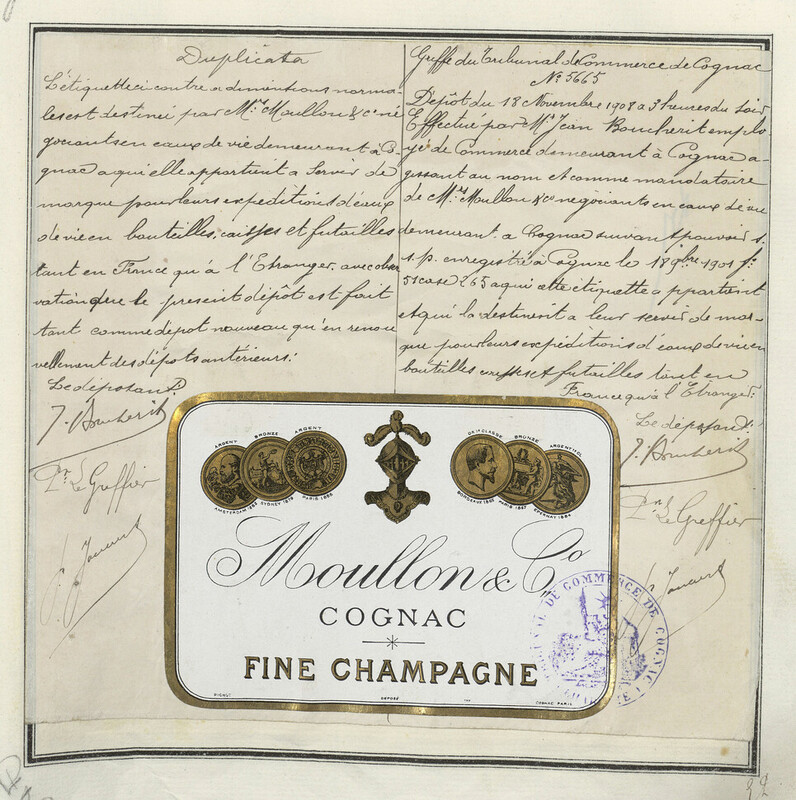 Duplicata
L'étiquette ci contre a dimensions norma-
les est destinée par Mrs Moullon & Cie né
gociants en eaux de vie demeurant à Co-
gnac a qui elle appartient a servir de
marque pour leurs expéditions d'eaux
de vie en bouteilles, caisses et futailles
tant en France qu'à l'Etranger avec obser
vation que le present dépôt est fait
tant comme dépot nouveau qu'en renou
vellement des dépots antérieurs.
Le déposant
J. Boucherit
Le Greffier
Greffe du Tribunal de Commerce de Cognac
No 5665
Dépôt du 18 Novembre 1908 a 3 heures du soir
Effectué par Mr Jean Boucherit emplo
yé de Commerce demeurant à Cognac a-
gissant au nom et comme mandataire
de Mrs Moullon & Co négociants en eaux de vie
demeurant a Cognac suivant pouvoir s.
s.p. enregistré à Cognac le 18 9bre 1901 fo
51 case 265 a qui cette etiquette appartient
et qui la destinent a leur servir de mar-
que pour leurs expéditions d'eaux de vie en
bouteilles caisses et futailles tant en
France qu'à l'Etranger.
Le déposant
J. Boucherit
Le Greffier
ARGENT BRONZE ARGENT
AMSTERDAM SYDNEY 1879 PARIS
DE 1e CLASSE BRONZE ARGENT
BORDEAUX PARIS 1867 EPERNAY
Moullon & Co
COGNAC
FINE CHAMPAGNE
DÉPOSÉ
COGNAC PARIS
TRIBUNAL DE COMMERCE DE COGNAC